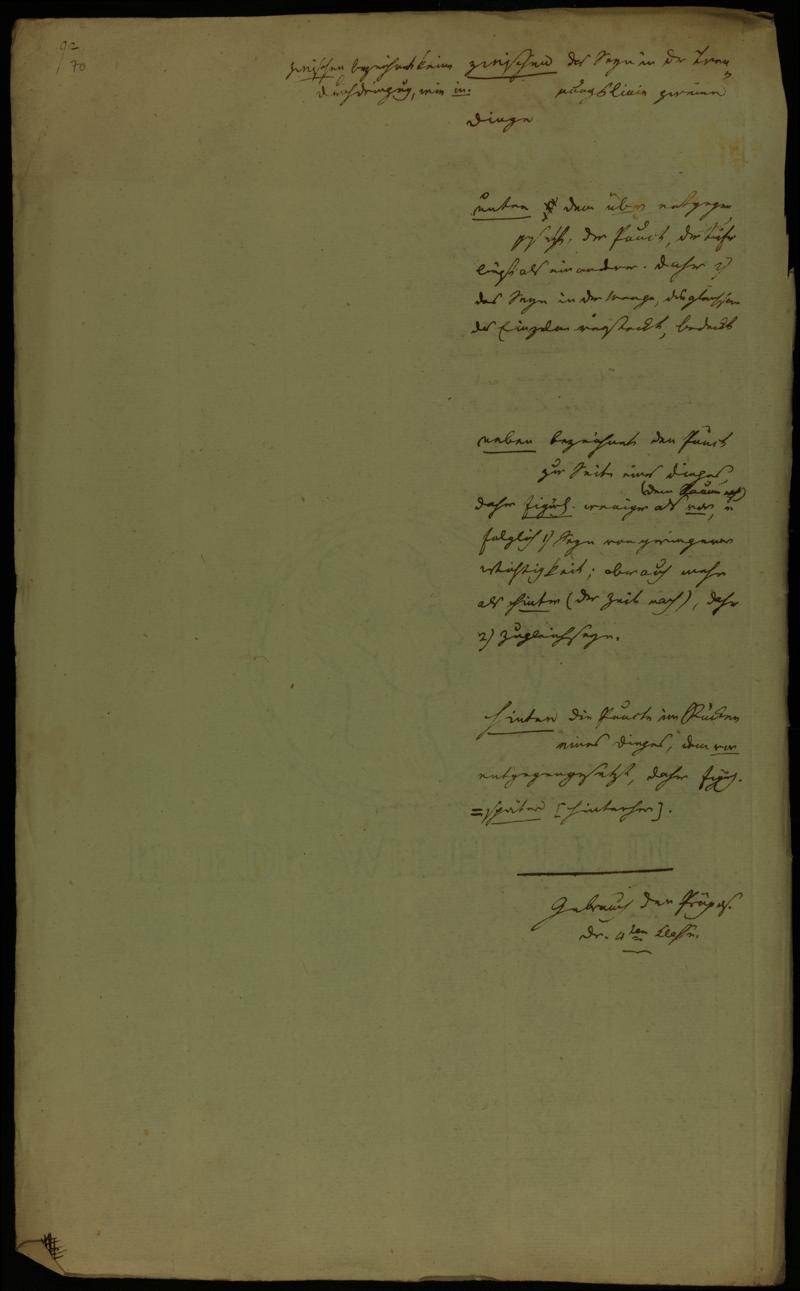 92
70
zwischen bezeichnet keine
durchdringung, wie in.
zwischen das Seyn in der Tren=
nungslinie zweier
Dinge
unten dem über entgegen
gesetzt, der Punct, der tiefer
liegt als ein anderer. Daher 2)
das Seyn in der Menge, die gleichsam
das Einzelne versteckt, bedeckt
neben bezeichnet den Punct
zur Seite eines Dinges,
(dem Raume nach)
daher figürl. weniger als vor, u
folglich 1) Seyn von geringerer
Wichtigkeit; aber auch mehr
als hinter (der Zeit nach), daher
2) Zugleichseyn.
hinten die Puncte im Rücken
eines Dinges, dem vor
entgegengesetzt, daher figürl.
= später [hinterher].
Gebrauch der Präpos.
der 4ten Classe.